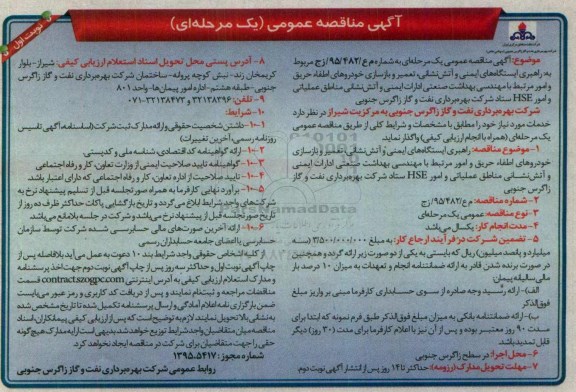 آگهی مناقصه عمومی (یک مرحله‌ای)
نوبت اول
موضوع: آگهی مناقصه عمومی یک مرحله‌ای به شماره م ع/۹۵/۴۸۲/زج مربوط
به راهبری ایستگاه‌های ایمنی و آتش‌نشانی، تعمیر و بازسازی خودروهای اطفاء حریق
و امور مرتبط با مهندسی بهداشت صنعتی ادارات ایمنی و آتش نشانی مناطق عملیاتی
و امور HSE ستاد شرکت بهره‌برداری نفت و گاز زاگرس جنوبی
شرکت بهره‌برداری نفت و گاز زاگرس جنوبی به مرکزیت شیراز در نظر دارد
خدمات مورد نیاز خود را مطابق با مشخصات و شرایط کلی از طریق مناقصه عمومی
یک مرحله‌ای (همراه با انجام ارزیابی کیفی) واگذار نماید.
۱- موضوع مناقصه: راهبری ایستگاه‌های ایمنی و آتش‌نشانی، تعمیر و بازسازی
خودروهای اطفاء حریق و امور مرتبط با مهندسی بهداشت صنعتی ادارات ایمنی
و آتش‌نشانی مناطق عملیاتی و امور HSE ستاد شرکت بهره‌برداری نفت و گاز
زاگرس جنوبی
۲- شماره مناقصه: م ع/۹۵/۴۸۲/زج
۳- نوع مناقصه: عمومی یک مرحله‌ای
۴- مدت انجام کار: یکسال می‌باشد
۵- تضمین شرکت در فرآیند ارجاع کار: به مبلغ ۳/۵۰۰/۰۰۰/۰۰۰ (سه
میلیارد و پانصد میلیون) ریال که بایستی به یکی از دو صورت زیر ارائه گردد و همچنین
در صورت برنده شدن قادر به ارائه ضمانتنامه انجام تعهدات به میزان ۱۰ درصد بار
مالی سالیانه پیمان
الف)- ارائه رسید وجه صادره از سوی حسابداری کارفرما مبنی بر واریز مبلغ
فوق‌الذکر
ب)- ارائه ضمانتنامه بانکی به میزان مبلغ فوق‌الذکر طبق فرم نمونه که ابتدا برای
مدت ۹۰ روز معتبر بوده و پس از آن نیز با اعلام کارفرما برای مدت (۳۰ روز) دیگر
قابل تمدید باشد.
۶- محل اجرا: در سطح زاگرس جنوبی
۷- مهلت تحویل مدارک (رزومه): حداکثر تا ۱۴ روز پس از انتشار آگهی نوبت دوم
۸- آدرس پستی محل تحویل اسناد استعلام ارزیابی کیفی: شیراز- بلوار
کریمخان زند- نبش کوچه پروانه- ساختمان شرکت بهره‌برداری نفت و گاز زاگرس
جنوبی- طبقه هشتم- اداره امور پیمان‌ها- واحد ۸۰۱
۹- تلفن: ۳۲۱۳۸۳۹۶ و ۳۲۱۳۸۴۷۳-۰۷۱
۱۰- شرایط:
۱-۱۰- داشتن شخصیت حقوقی و ارائه مدارک ثبت شرکت (اساسنامه، آگهی تاسیس
روزنامه رسمی (آخرین تغییرات)
۲-۱۰- ارائه گواهینامه کد اقتصادی، شناسه ملی و کدپستی
۳-۱۰- گواهینامه تایید صلاحیت ایمنی از وزارت تعاون، کار و رفاه اجتماعی
۴-۱۰- تایید صلاحیت از اداره تعاون، کار و رفاه اجتماعی که دارای اعتبار باشد
۵-۱۰- برآورد نهایی کارفرما به همراه صورتجلسه قبل از تسلیم پیشنهاد نرخ به
شرکت‌های واجد شرایط ابلاغ می‌گردد و تاریخ بازگشایی پاکات حداکثر ظرف ده روز از
تاریخ صورتجلسه قبل از پیشنهاد نرخ می‌باشد و شرکت در جلسه بلامانع می‌باشد
۶-۱۰- ارائه آخرین صورت‌های مالی حسابرسی شده شرکت توسط سازمان
حسابرسی یا اعضای جامعه حسابداران رسمی
از کلیه اشخاص حقوقی واجد شرایط بند ۱۰ دعوت به عمل می‌آید بلافاصله پس از
چاپ آگهی نوبت اول و حداکثر سه روز پس از چاپ آگهی نوبت دوم جهت اخذ پرسشنامه
و مدارک استعلام ارزیابی کیفی به آدرس اینترنتی contract.szogpc.com قسمت
مناقصات مراجعه و ثبت نام نمایند و پس از دریافت کد کاربری و رمز عبور می‌بایست
ضمن بارگزاری نامه اعلام آمادگی و ارسال پرسشنامه تکمیل شده تا تاریخ مشخص شده
به نشانی بالا تحویل نمایند. لازم به توضیح است که پس از ارزیابی کیفی پیمانکاران، اسناد
مناقصه میان متقاضیان واجد شرایط توزیع خواهد شد بدیهی است ارایه مدارک هیچ گونه
حقی را جهت متقاضیان برای شرکت در مناقصه ایجاد نخواهد کرد.
شماره مجوز: ۱۳۹۵.۵۴۱۷
روابط عمومی شرکت بهره‌برداری نفت و گاز زاگرس جنوبی